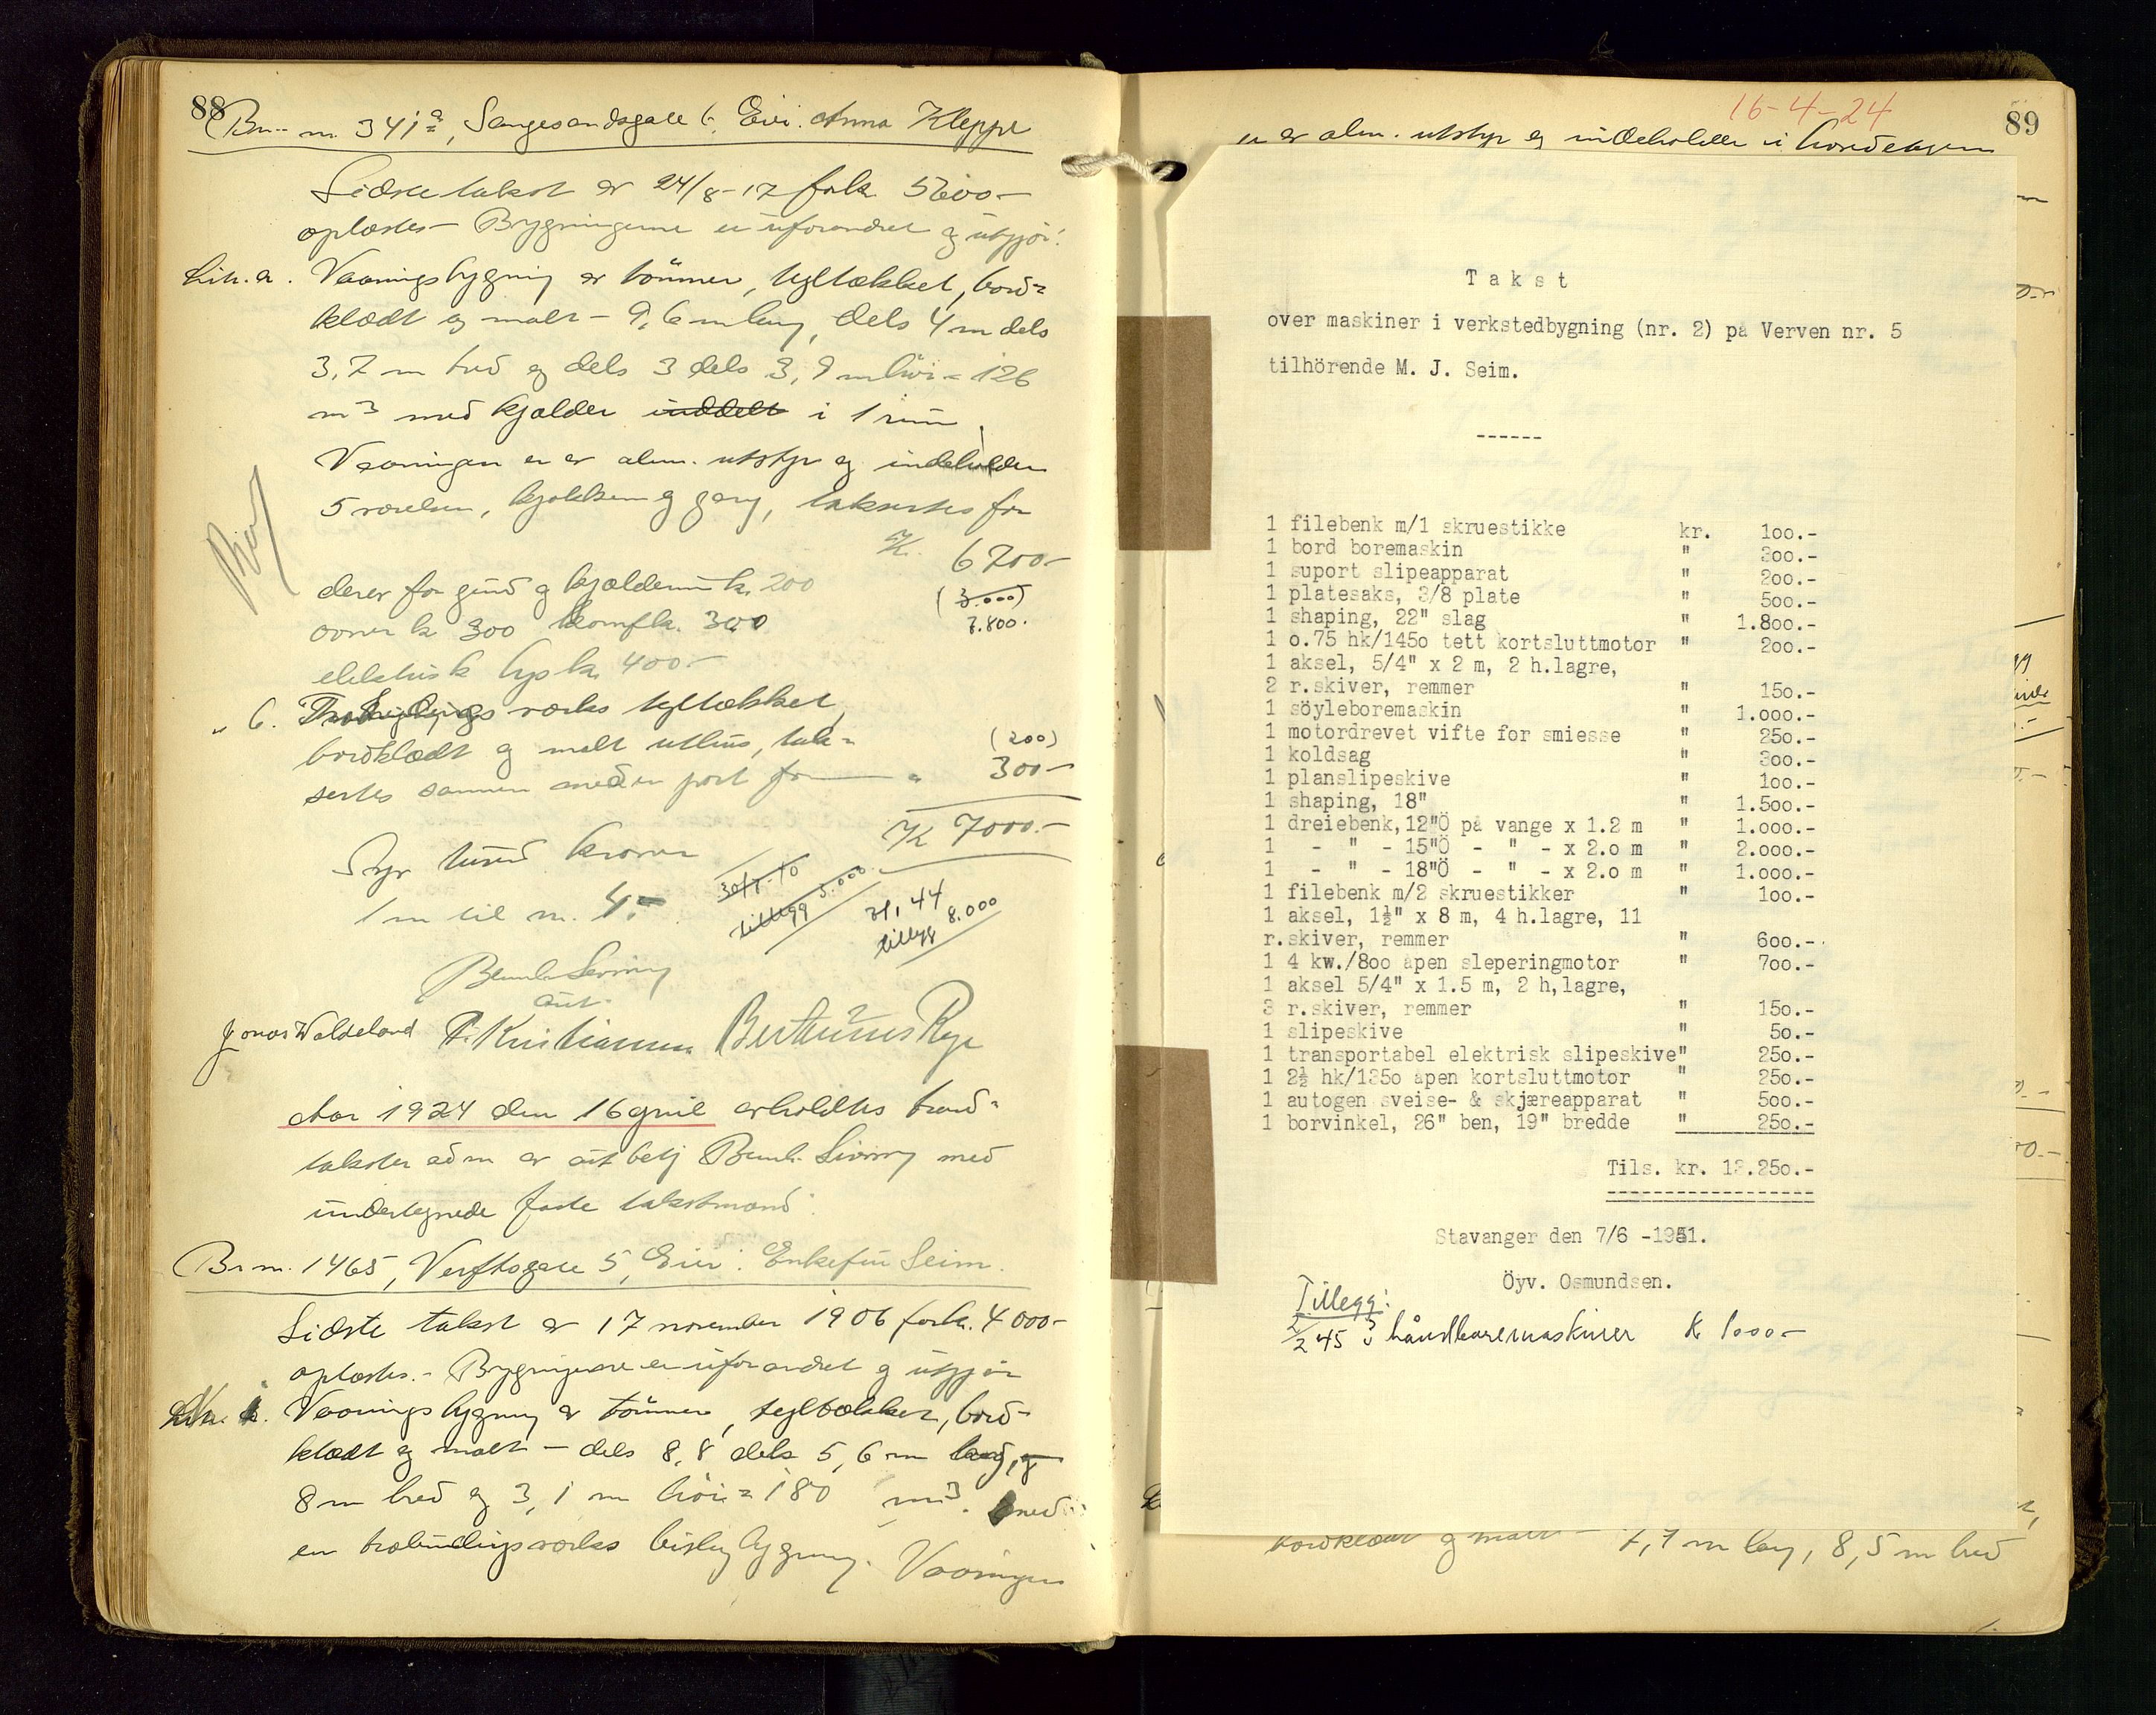 88
Br. nr. 341a, Sangesandsgate 6, Eier: Anna Kleppe
Sidste takst er 24/8-17 for kr. 5600-
oplæstes - Bygningerne er uforandret og utgjør:
Lit. a. Vaaningsbygning av tømmer, tegltækket, bord=
klædt og malt - 9,6 m lang, dels 4 m dels
3,7 m bred og dels 3 dels 3,9 m høi = 126
m3 med kjælder inddelt i 1 rum
Vaaningen er av alm. utstyr og indeholder
5 værelser, kjøkken og gang, taksertes for
Kr. 6700-
derav for grund og kjældermur kr. 200
(3.000)
ovner kr 300 komfk. 300
3.800.
elektrisk lys kr. 400-
" b. Træbindingsværks tegltækket,
bordklædt og malt uthus, tak=
(200)
sertes sammen med en port for " 300-
Kr 7000.-
Syv tusind kroner
1 m til nr. 4.
30/7-40
tillegg 5.000
31, 44
tillegg 8.000
Bernh. Severing
aut.
Jonas Waldeland P. Kristiansen Berthinius Rege
Aar 1924 den 16 april avholdtes brand=
takster adm av aut betj Bernh. Severing med
undertegnede faste takstmænd:
Br. nr. 1465, Verftsgate 5, Eier: Enkefru Seim.
Sidste takst er 17 november 1906 for kr. 4000-
oplæstes. - Bygningerne er uforandret og utgjør
Vaaningsbygning av tømmer, tegltækket, bord-
klædt og malt - dels 8,8 dels 5,6 m lang, og
8 m bred og 3,1 m høi = 180 m3. med
en træbindingsværks bislagbygning. Vaaningen
16-4-24
89
er av alm. utstyr og indeholder i hovedetagen
Takst
over maskiner i verkstedbygning (nr. 2) på Verven nr. 5
tilhörende M. J. Seim.
------
1 filebenk m/1 skruestikke kr. 100.-
1 bord boremaskin " 300.-
1 suport slipeapparat " 200.-
1 platesaks, 3/8 plate " 500.-
1 shaping, 22" slag " 1.800.-
1 o.75 hk/145o tett kortsluttmotor " 200.-
1 aksel, 5/4" x 2 m, 2 h.lagre,
2 r.skiver, remmer " 150.-
1 söyleboremaskin " 1.000.-
1 motordrevet vifte for smiesse " 250.-
1 koldsag " 300.-
1 planslipeskive " 100.-
1 shaping, 18" " 1.500.-
1 dreiebenk,12"Ö på vange x 1.2 m " 1.000.-
1 - " - 15"Ö - " - x 2.o m " 2.000.-
1 - " - 18"Ö - " - x 2.o m " 1.000.-
1 filebenk m/2 skruestikker " 100.-
1 aksel, 1½" x 8 m, 4 h.lagre, 11
r.skiver, remmer " 600.-
1 4 kw./8oo åpen sleperingmotor " 700.-
1 aksel 5/4" x 1.5 m, 2 h,lagre,
3 r.skiver, remmer " 150.-
1 slipeskive " 50.-
1 transportabel elektrisk slipeskive" 250.-
1 2½ hk/135o åpen kortsluttmotor " 250.-
1 autogen sveise- & skjæreapparat " 500.-
1 borvinkel, 26" ben, 19" bredde " 250.-
Tils. kr. 13.250.-
Stavanger den 7/6 -1941.
Öyv. Osmundsen.
Tillegg:
2/2 45 3 håndboremaskiner K 1000-
bordklædt og malt - 7,7 m lang, 8,5 m bred